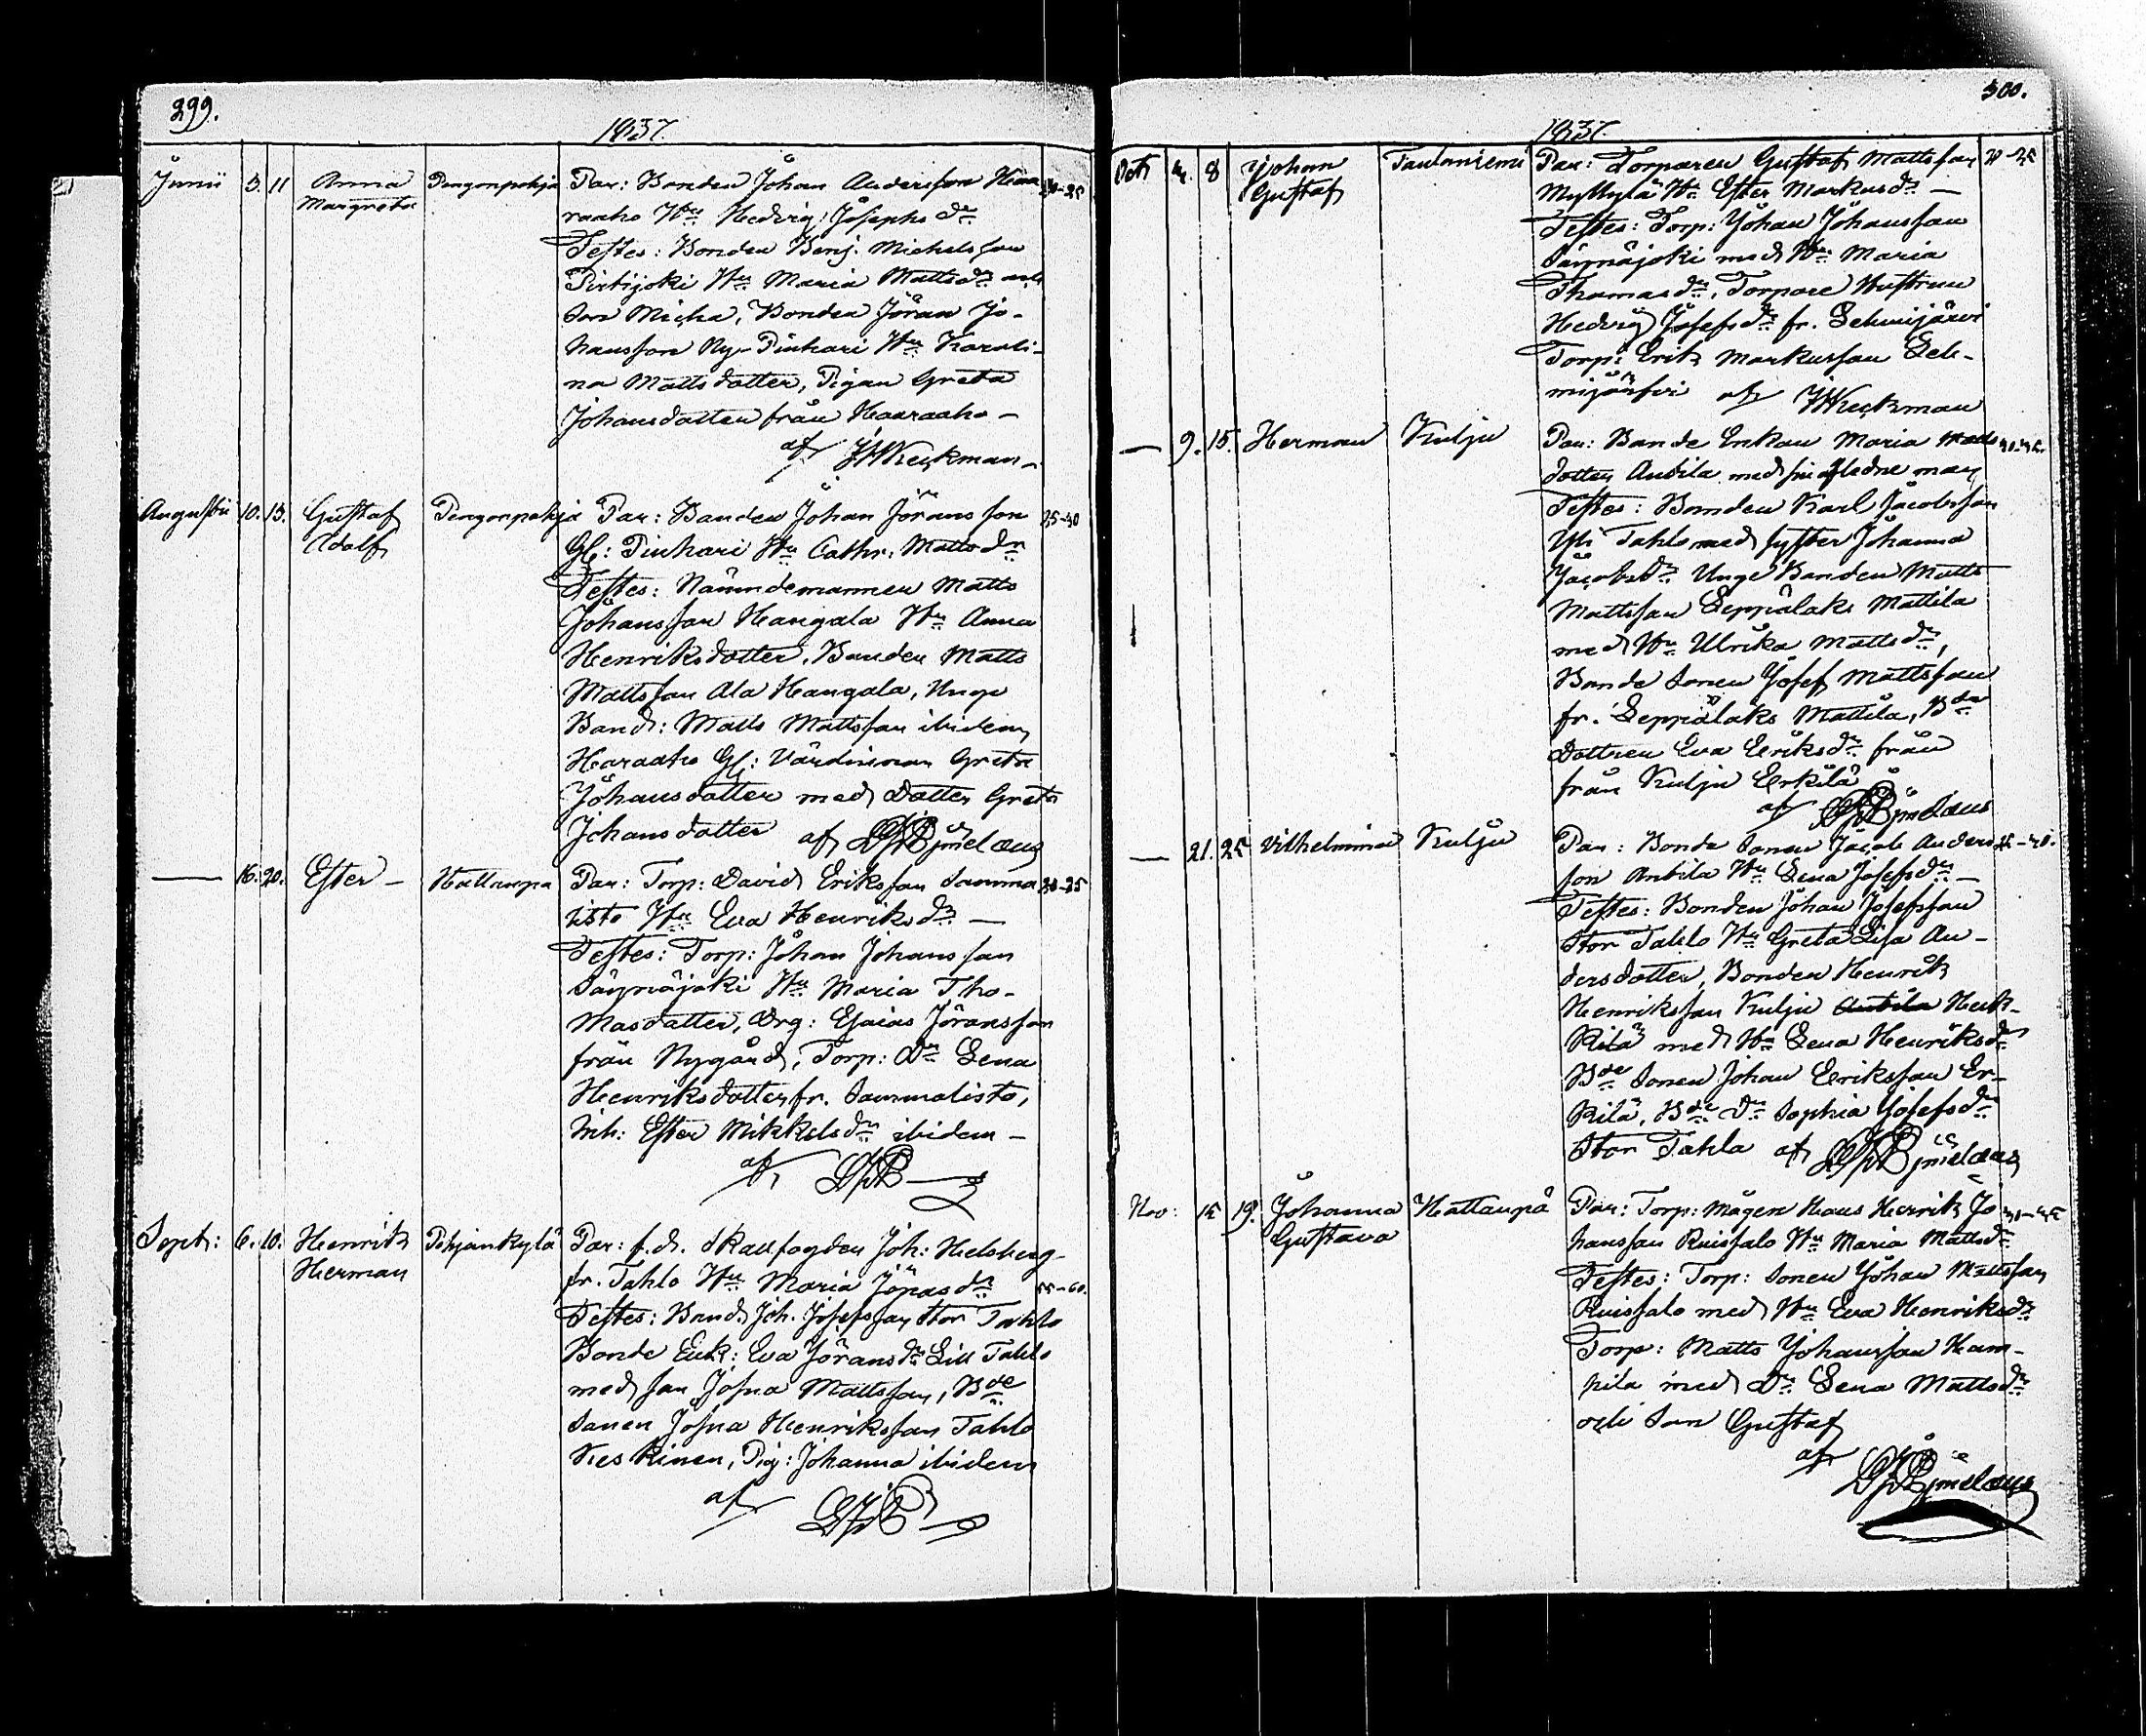 299.
1837.
Junii 5. 11 Anna Pengonpohja Par: Bonden Johan Andersson Haa 20-25
Margreta raaho Hu Hedvig Josephs dr
Testes: Bonden Benj. Michelsson
Pirtijoki Hu Maria Matts dr och
Son Micha, Bonden Jöran Jo-
hansson Ny-Piuhari Hu Karoli-
na Mattsdotter, Pigan Greta
Johansdotter från Haaraaho-
af JHKeckman
Augusti 10. 13. Gustaf Pengonpohja Par: Bonden Johan Jöransson 25-30
Adolf Gl: Piuhari Hu Cathr: Matts dr
Testes: Nämndemannen Matts
Johansson Hangala Hu Anna
Henriksdotter, Bonden Matts
Mattsson Ala Hangala, Unge
Bond: Matts Mattsson ibidem
Haraaho Gl: Värdinnan Greta
Johansdotter med Dotter Greta
Johansdotter af
— 16. 20. Ester - Hattanpa Par: Torp: David Eriksson Samma 20-25
listo Hu Eva Henriks dr —
Testes: Torp: Johan Johansson
Särgnäjoki Hu Maria Tho-
masdotter, Drg: Esaias Jöransson
från Nygård, Torp: Dr Lena
Henriksdotter fr. Sammalisto,
Inh: Ester Mikkels dr ibidem -
af
Sept: 6. 10. Henrik Pohjankylä Par: f.d. Skallfogden Joh: Helsberg
Herman fr. Tahlo Hu Maria Jonas dr 55-60.
Testes: Bond. Joh. Josefsson Stor Tahlo
Bonde Enk: Eva Jörans dr Lill Tahlo
med son Josua Mattsson, Bde
Sonen Josua Henriksson Tahlo
Keskinen, Pig: Johanna ibidem
af
300.
1837
Octr 4. 8 Johan Tautaniemi Par: Torparen Gustaf Mattsson 20-25
Gustaf Myllylä Hu Ester Markus dr —
Testes: Torp: Johan Johansson
Särgnäjoki med Hu Maria
Thomas dr, Torpare Hustrun
Hedvig Josefs dr fr. Lehmijärvi
Torp: Erik Markusson Leh-
mijärfvi af JHKeckman
— 9. 15. Herman Kulju Par: Bonde Enkan Maria Matts
dotter Antila med sin afledne man
Testes: Bonden Karl Jacobsson
Yli Tahlo med syster Johanna
Jacobs dr Unge Bonden Matts
Mattsson Leppälaks Mattila
med Hu Ulrika Matts dr,
Bonde Sonen Josef Mattsson
fr. Leppälaks Mattila, Bde
Dottren Eva Eriks dr från
från Kulju Erkilä
af
— 21. 25 Vilhelmina Kulju Par: Bonde Sonen Jacob Anders
son Antila Hu Lena Josefs dr —
Testes: Bonden Johan Josefsson
Stor Tahlo Hu Greta Lisa An-
dersdotter, Bonden Henrik
Henriksson Kulju Antila Heik-
kilä med Hu Lena Henriks dr
Bde Sonen Johan Eriksson Er-
kilä, Bde Dr Sophia Josefs dr
Stor Tahla af
Nov: 15 19. Johanna Hattanpä Par: Torp: Mågen Hans Henrik Jo
Gustava hansson Ruissalo Hu Maria Matts dr
Testes: Torp: Sonen Johan Mattsson
Ruissalo med Hu Eva Henriks dr
Torp: Matts Johansson Ham-
pila med Dr Lena Matts dr
och Son Gustaf
af